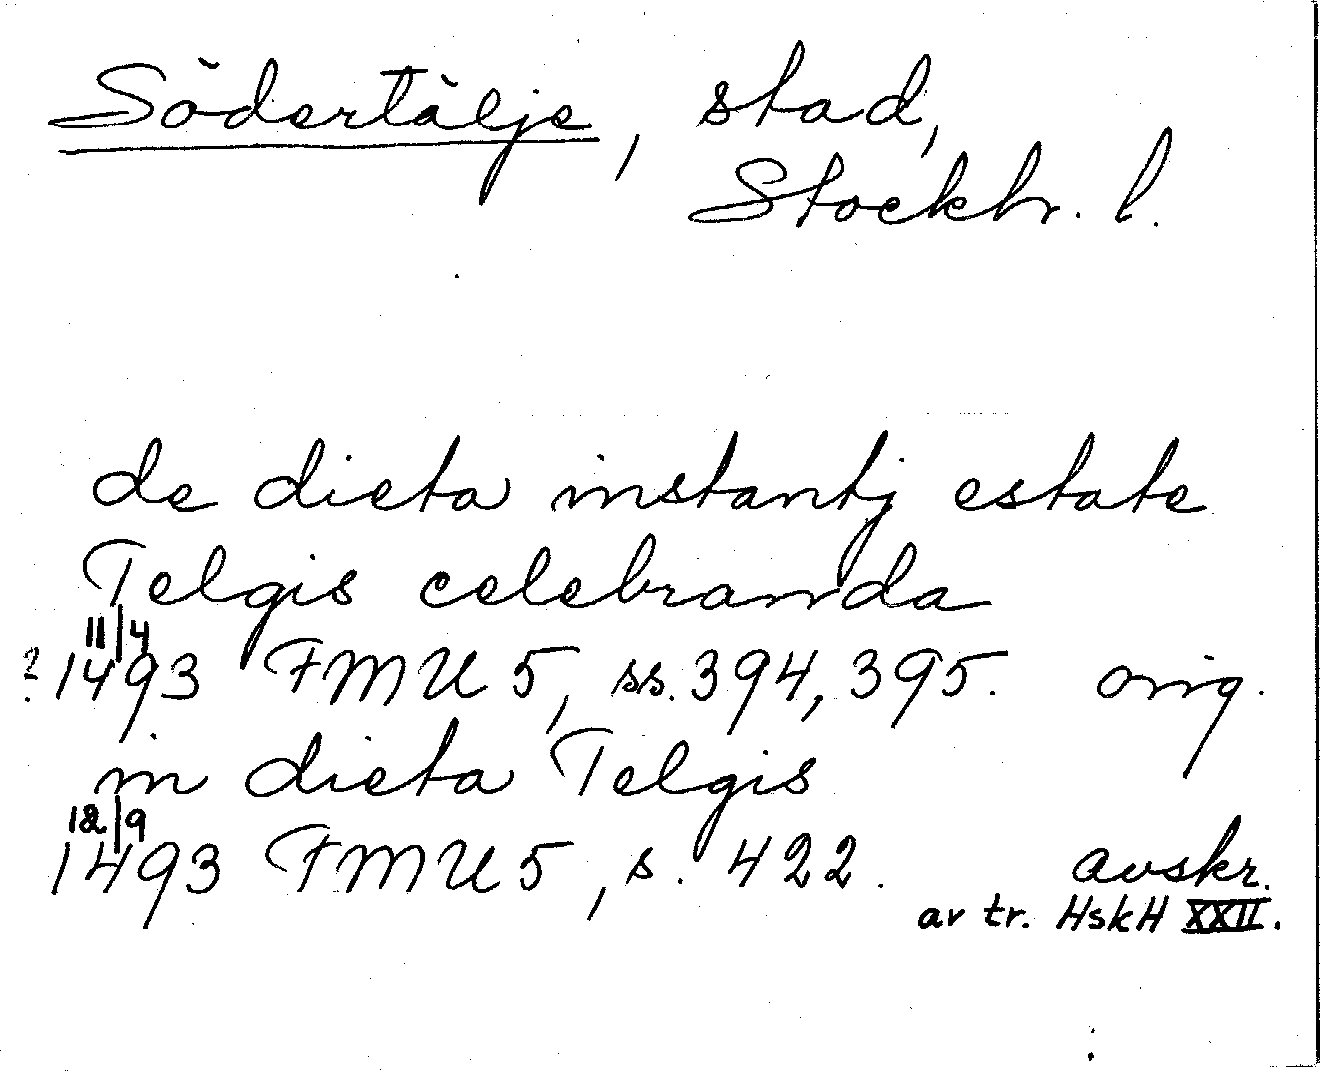 Södertälje, stad,
Stockh. l.
de dieta instantj estate
Telgis celebranda
11/4
? 1493 FMU 5, ss. 394, 395. orig.
in dieta Telgis
12/9
1493 FMU 5, s. 422. avskr.
av tr. HskH XXII.